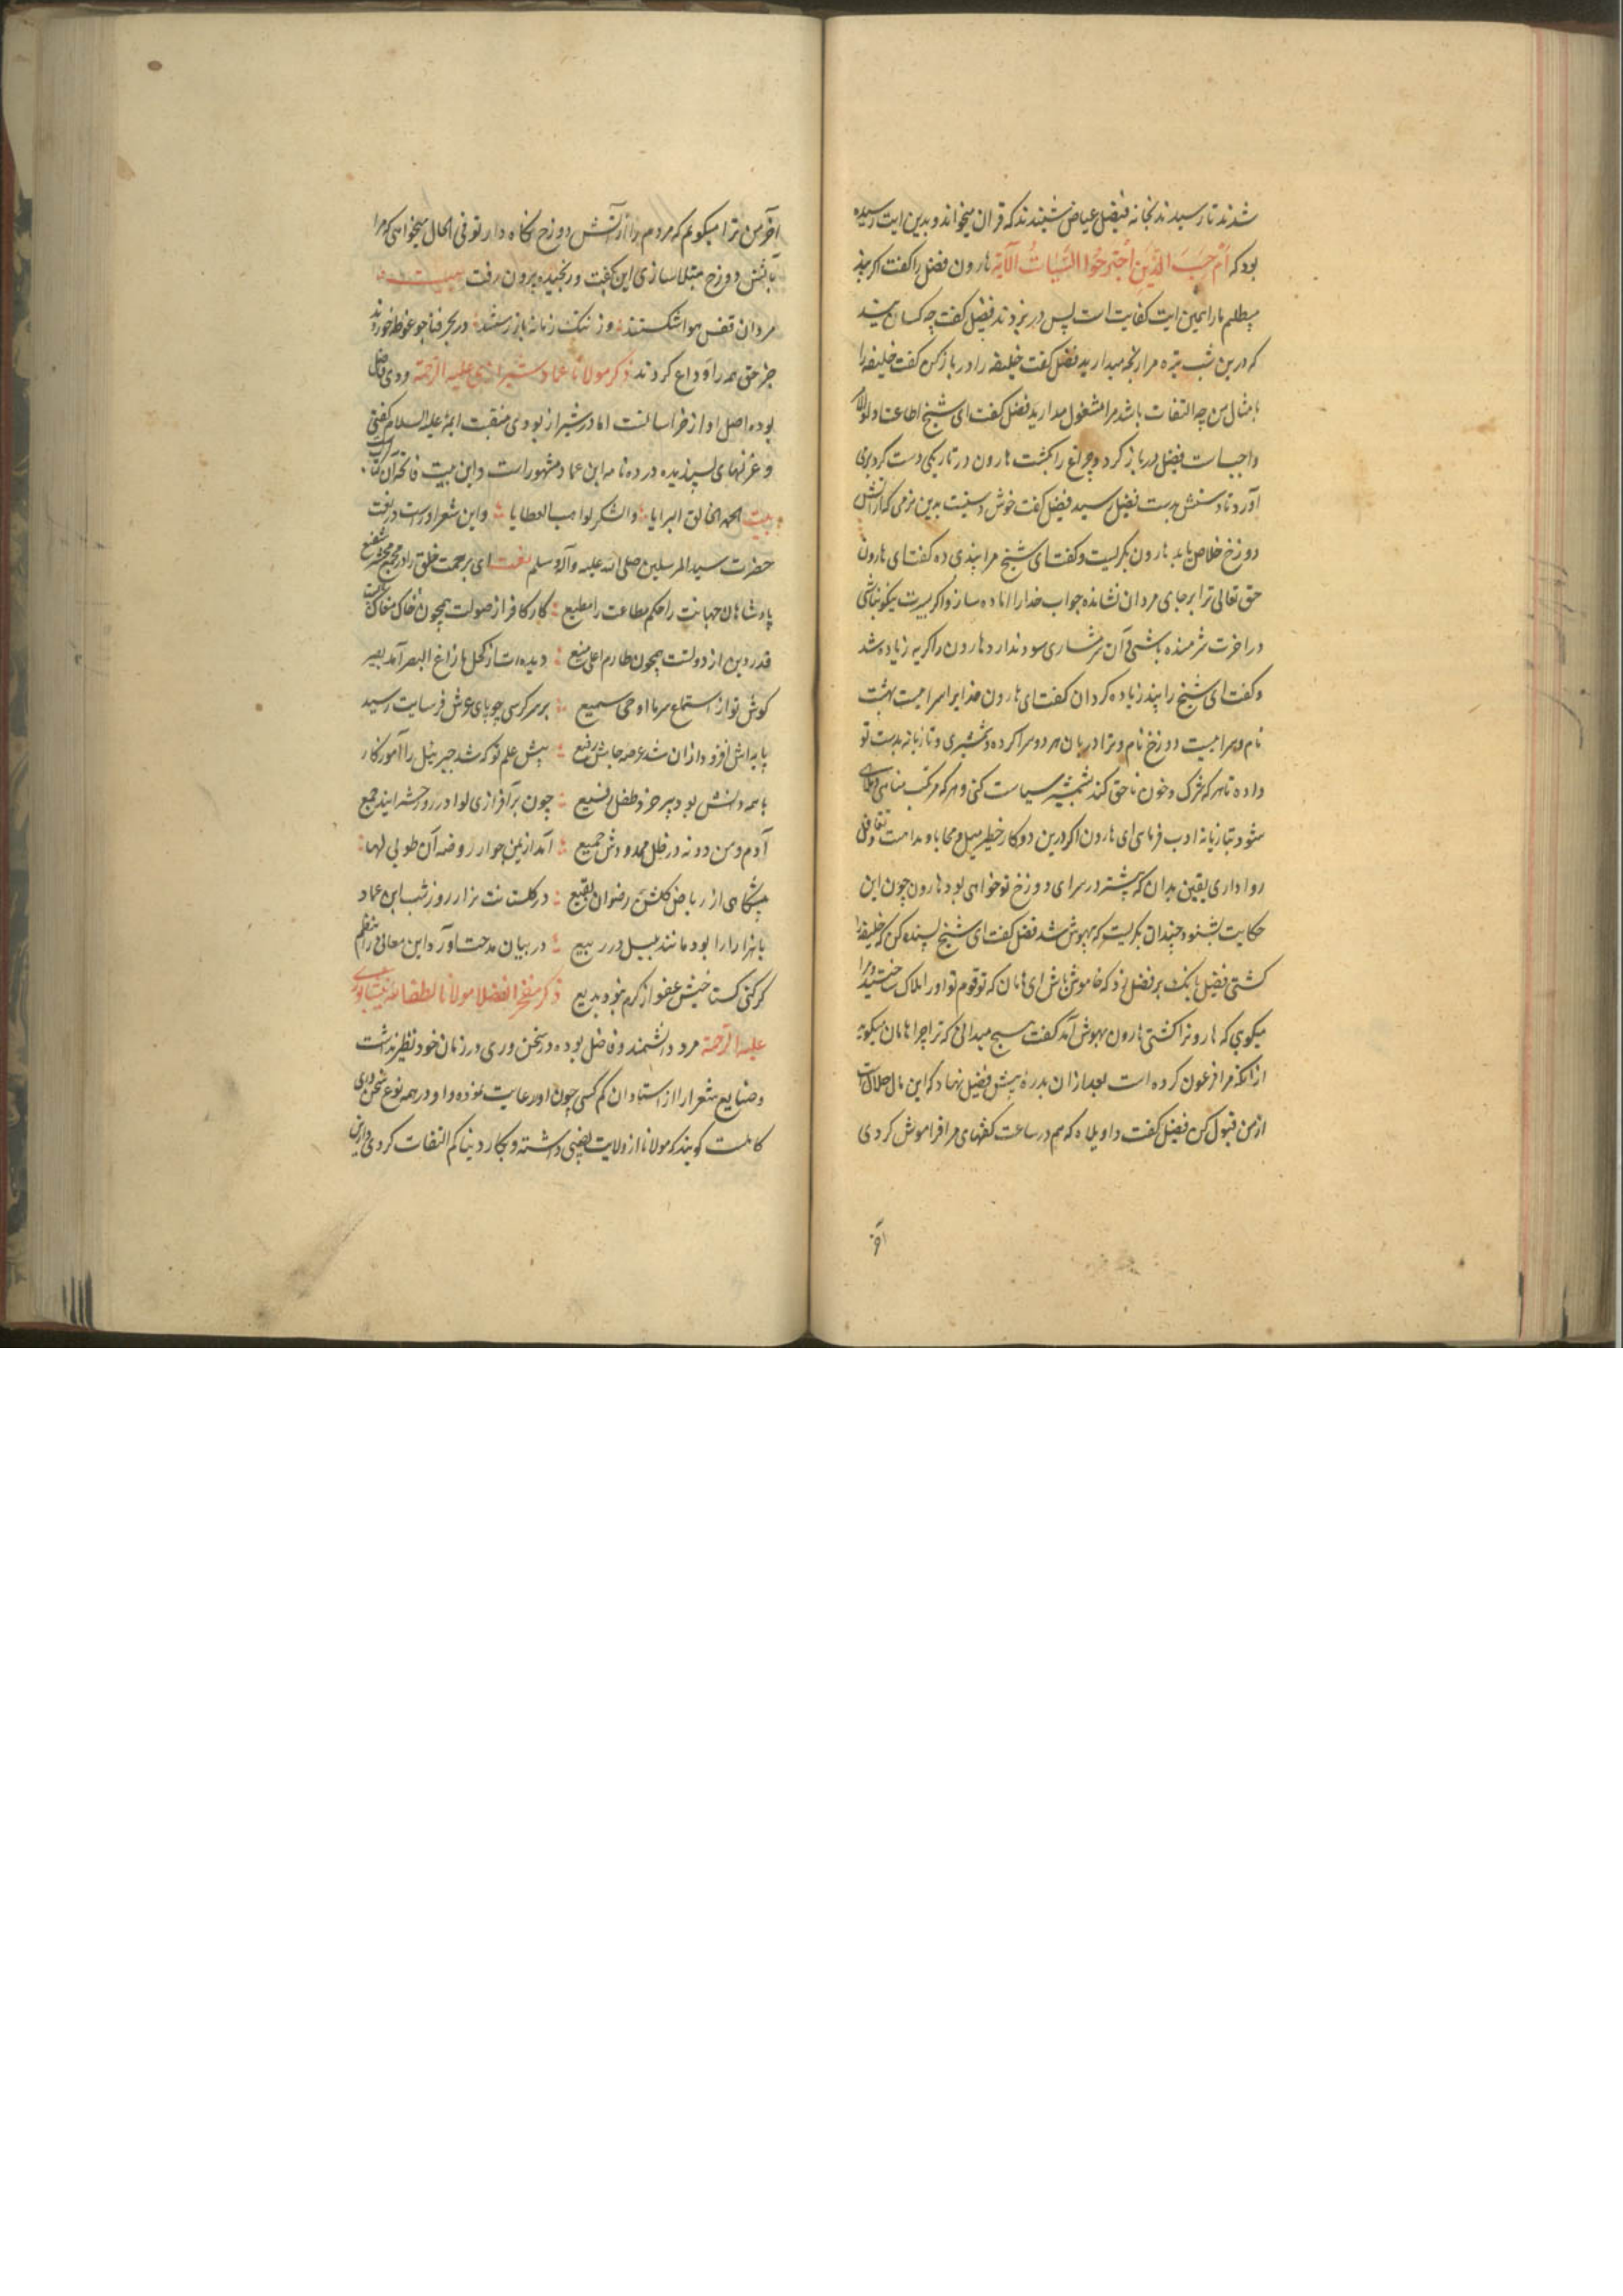 شدند تا رسیدند بخانه فضیل عیاض شنیدند که قران میخواند و بدین ایت رسیده
بود که اَمْ حَسِبَ الَّذینَ اجْتَرَحُوا السَّیِّئَاتُ الآیه هارون فضل را گفت اکر پند
میطلبم ما را همین ایت کفایت است پس در بزدند فضیل گفت چه کسانید
که درین شب تیره مرا رنجه میدارید فضل گفت خلیفه را در باز کن گفت خلیفه را
با مثال من چه التفات باشد مرا مشغول مدارید فضل گفت ای شیخ اطاعت اولوالامر
واجبست فضیل در باز کرد و چراغ را بکشت هارون در تاریکی دست کرد برمی
آورد تا دستش بدست فضیل رسید فضیل گفت خوش دستیست بدین نرمی که از آتش
دوزخ خلاص یابد هارون بگریست و گفت ای شیخ مرا پندی ده گفت ای هارون
حق تعالی ترا بر جای مردان نشانده جواب خدا را اماده ساز و اکر بسیرت نیکو نباشی
در اخرت شرمنده باشی و آن شرمساری سود ندارد هارون را کریه زیاده شد
و گفت ای شیخ را پند زیاده کردان گفت ای هارون خدایرا سراییست بهشت
نام و سراییست دوزخ نام و ترا دربان هر دو سرا کرده و شمشیری و تازیانه بدست تو
داده تا هر که شرک و خون ناحق کند بشمشیر سیاست کنی و هر که مرتکب مناهی و ملاهی
شود بتازیانه ادب فرمای ای هارون اکر درین دو کار خطیر میل و محابا و مداهنت و تغافل
روا داری یقین بدان که پیشتر در سرای دوزخ تو خواهی بود هارون چون این
حکایت بشنود چندان بگریست که بیهوش شد فضل گفت ای شیخ بسنده کن که خلیفه را
کشتی فضیل بانک بر فضل زد که خاموش باش ای هامان که تو و قوم تو او را هلاک ساختید و مرا
میکوی که هارونرا کشتی هارون بهوش آمد گفت هیچ میدانی که ترا چرا هامان میکوید
از آنکه مرا فرعون کرده است بعد ازان بدره پیش فضیل نهاد که این مال حلال است
از من قبول کن فضیل گفت واویلاه که هم در ساعت گفتهای مرا فراموش کردی
آخر
آخر من ترا میکویم که مردم را از آتش دوزخ نکاه دار تو فی الحال میخواهی که مرا
بآتش دوزخ مبتلا سازی این بگفت و رنجیده بیرون رفت بیت
مردان قفس هوا شکستند وز ننک زمانه باز رستند در بحر فنا چو غوطه خوردند
جز حق همه را وداع کردند ذکر مولانا عماد شیرازی علیه الرحمه و وی فاضل
بوده اصل او از خراسانست اما در شیراز بودی منقبت ایمه علیه السلام گفتی
و غزلهای پسندیده در ده نامه ابن عماد مشهور است و این بیت فاتحه آن کتاب
بیت الحمد لخالق البرایا والشکر لواهب العطایا و این شعر اوراست در نعت
حضرت سید المرسلین صلی الله علیه وآله وسلم نعت ای برحمت خلق را در مجمع محشر شفیع
پادشاهان جهانت را حکم مطاعت را مطیع کار کافر از صولت همچون خاک مغاک پست
قدر دین از دولتت همچون طارم اعلی منیع دیده ات از کحل ما زاغ البصر آمد بصیر
کوش تو از استماع سر ما اوحی سمیع بر سر کرسی چو پای عرش فرسایت رسید
پایه اش افزود ازان شد عرصه جاهش رفیع پیش علم تو که شد جبریل را آموزکار
با همه دانش بود پیر خرد طفل رضیع چون برافرازی لوا در روز حشر ایند جمع
آدم و من دونه در ظل ممدودش جمیع آمد از یمن جوار روضه آن طوبی لها
پیشکاهی از ریاض کلشن رضوان بقیع در کلستان هزار روز و شب ابن عماد
با هزار آوا بود مانند بلبل در ربیع در بیان مدحت آورد این معانی را بنظم
کر کنی کستاخیش عفو از کرم نبود بدیع ذکر مفخر الفضلا مولانا لطف الله نیشابوری
علیه الرحمة مرد دانشمند و فاضل بوده در سخن وری در زمان خود نظیر نداشت
و صنایع شعر را از استادان کم کسی چون او رعایت نموده و او در همه نوع سخن وری
کاملست کویند که مولانا از ولایت نصیبی داشته و بکار دنیا کم التفات کردی و ازین